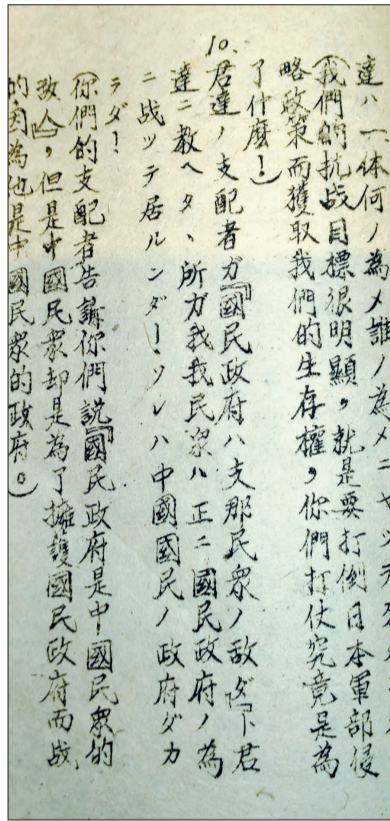 達ハ一体何ノ為メ誰ノ為メニ
(我們的抗战目標很明顯，就是要打倒日本軍部侵
略政策而獲取我們的生存權，你們打仗究竟是為
了什麼！)
10.
君達ノ支配者ガ『國民政府ハ支那民衆ノ敵ダ』ト君
達ニ教ヘタ、所ガ我我民衆ハ正ニ國民政府ノ為
ニ战ッテ居ルンダー・ソレハ中國國民ノ政府ダカ
ラダ！
(你們的支配者告訴你們説『國民政府是中國民衆的
敌人』，但是中國民衆却是為了擁護國民政府而战
的因為他是中國民衆的政府。)